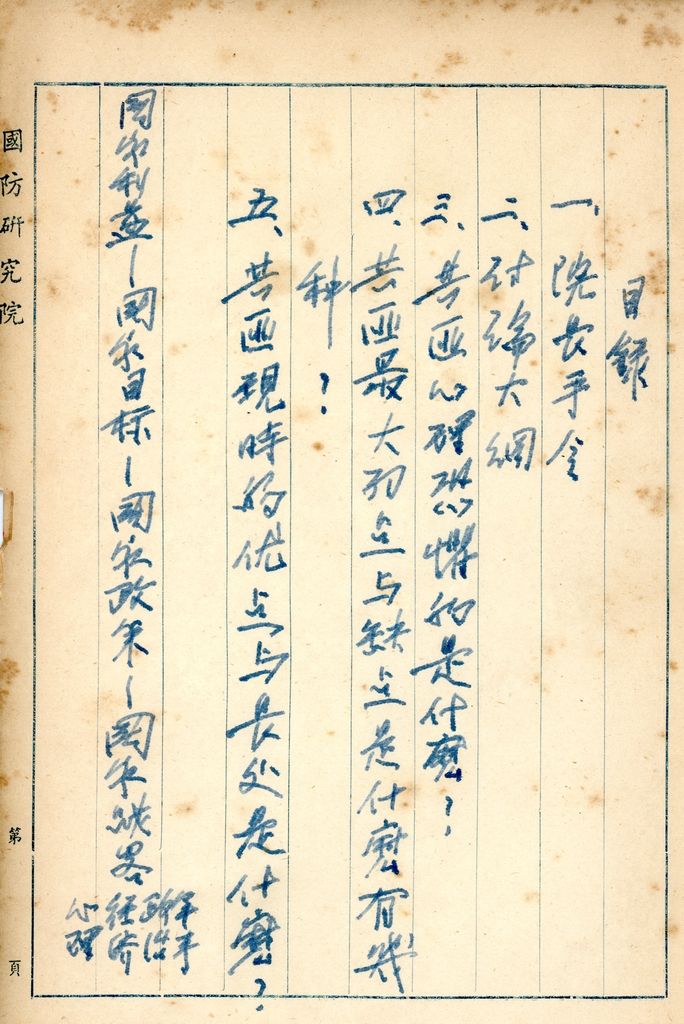 目録
一、院長手令
二、讨論大綱
三、共匪心理恐懼的是什麽？
四、共匪最大弱点与缺点是什麽有幾
种？
五、共匪現時的优点与長处是什麽？
國家利益—國家目标—國家政策—國家战畧
軍事
政治
经济
心理
國防研究院
第 頁